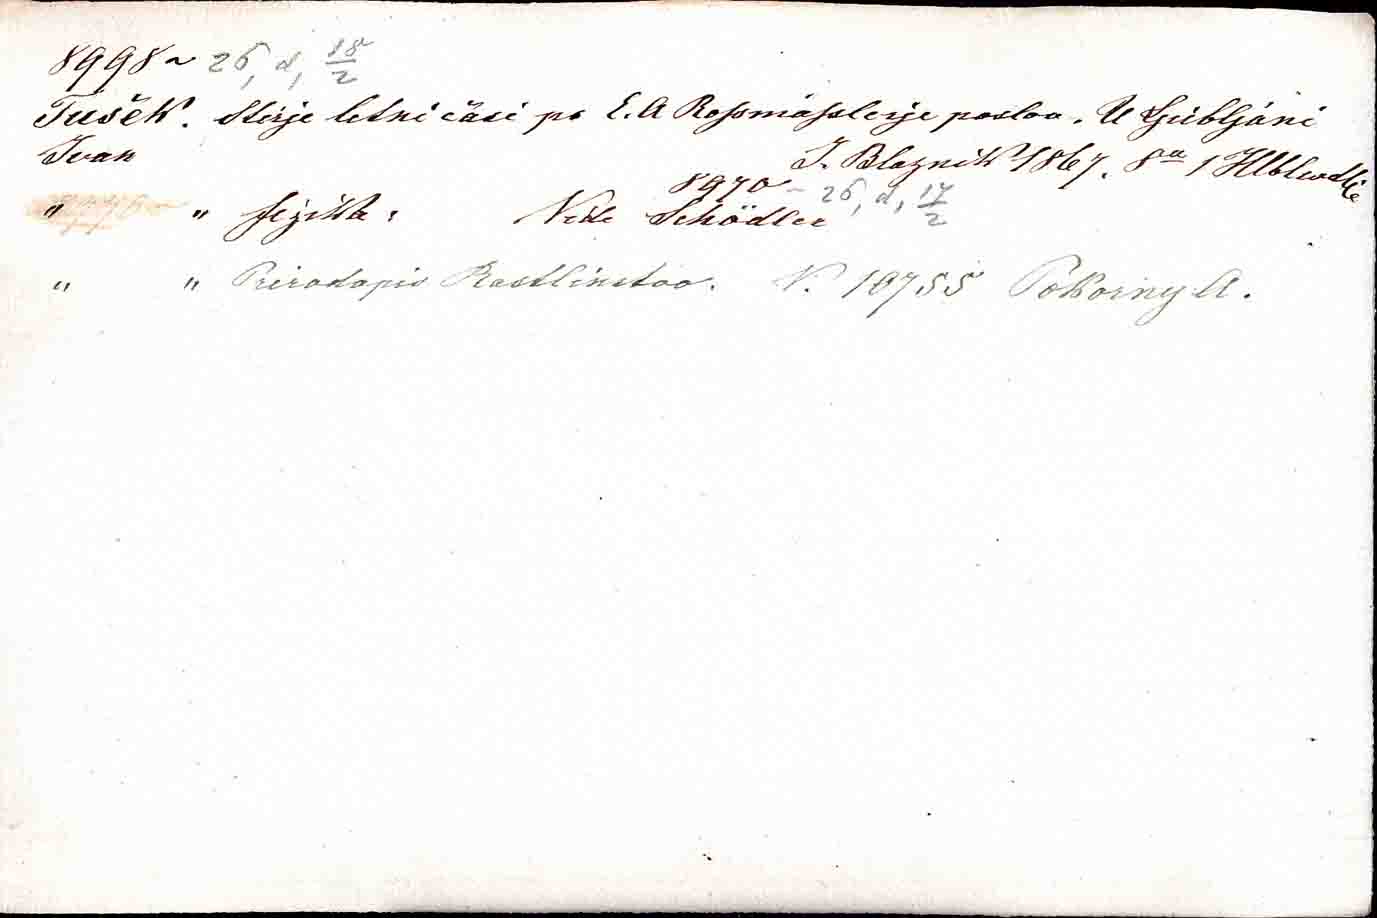 8998 ~ 26, d, 18/2
Tušek. Štirje letni časi po E. A Roßmäßlerje poslov. U Ljubljáni
Ivan
J. Blaznik 1867. 8º 1 Hlblwdb
8970 - 26, d, 17/2
" " fizika: Vide Schödler
" " Prirodopis Rastlinstva. V. 10755 Pokorny A.